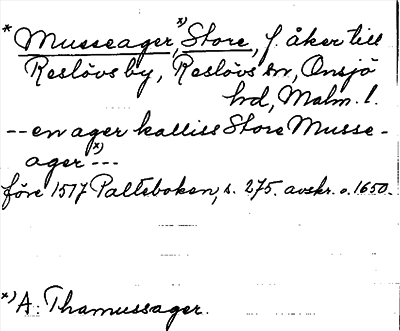 * Musseager,*) Store, f. åker till
Reslövs by, Reslövs sn, Onsjö
hd, Malm. l.
-- en ager kalliss Store Musse-
ager*) ---
före 1517 Palteboken, s. 275. avskr. o. 1650.
*) A: Thamussager.